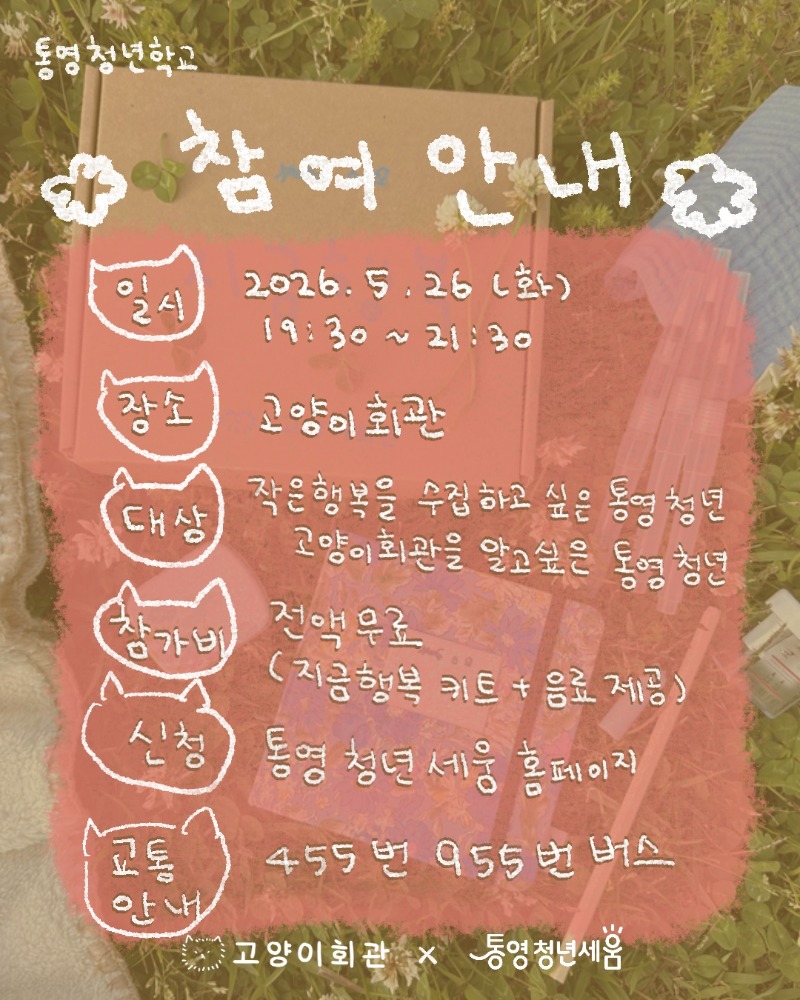 통영청년학교
참여 안내
일시
2026. 5. 26 (화)
19:30 ~ 21:30
장소
고양이회관
대상
작은행복을 수집하고 싶은 통영청년
고양이회관을 알고싶은 통영청년
참가비
전액무료
(지금행복 키트 + 음료 제공)
신청
통영 청년 세움 홈페이지
교통
안내
455번 955번 버스
고양이회관 × 통영청년세움